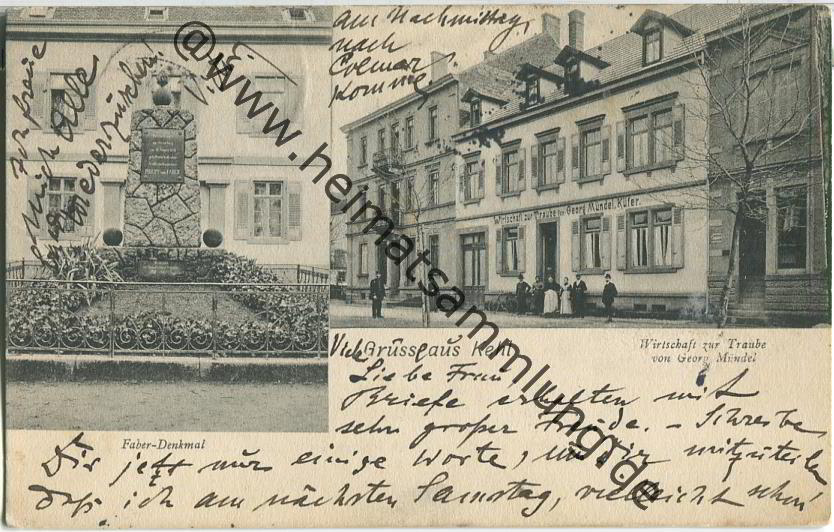 Gruss aus Kehl
Wirtschaft zur Traube
von Georg Mündel
Faber-Denkmal
Wirtschaft zur Traube von Georg Mündel, Küfer.
Viel
Liebe Frau
Briefe erhalten mit
sehr großer Freude. - Schreibe
Dir jetzt nur einige Worte, um Dir mitzuteilen
daß ich am nächsten Samstag, vielleicht schon
am Nachmittag,
nach
Colmar
komme.
Ich freue
mich Alle
wiederzusehen.
@www.heimatsammlung.de